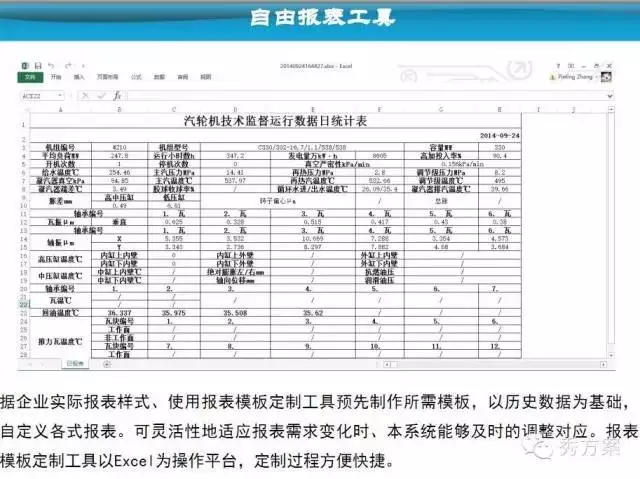 自由报表工具
20140924164827.xlsx - Excel
文件 开始 插入 页面布局 公式 数据 审阅 视图
A B C D E F G H
汽轮机技术监督运行数据日统计表
2014-09-24
机组编号 W210 机组型号 C330/302-16.7/1.1/538/538 容量MW 330
平均负荷MW 247.8 运行小时数h 347.2 发电量万kW·h 8605 高加投入率% 90.4
开机次数 1 停机次数 0 真空严密性kPa/min 0.156kPa/min
给水温度℃ 254.46 主汽压力MPa 14.41 再热压力MPa 2.8 调节级压力MPa 8.2
凝汽器真空kPa 94.85 主汽温度℃ 537.97 再热汽温℃ 532.66 调节级温度℃ 495
凝汽器端差℃ 3.49 胶球收球率% / 循环水进/出水温度℃ 26.09/35.4 凝汽器排汽温度℃ 39.66
胀差mm 高中压缸 低压缸 转子偏心μm / 总胀 /
0.49 6.61
轴承编号 1. 瓦 2. 瓦 3. 瓦 4. 瓦 5. 瓦 6. 瓦
瓦振μm 垂直 0.625 0.328 0.515 0.417 0.43 0.38
轴承编号 1. 瓦 2. 瓦 3. 瓦 4. 瓦 5. 瓦 6. 瓦
轴振μm X 5.355 3.532 10.669 7.288 3.354 4.573
Y 3.343 2.736 8.297 7.882 4.68 3.684
高压缸温度℃ 内缸上内壁 0 内缸上外壁 / 外缸上内壁 /
内缸下内壁 0 内缸下外壁 / 外缸下内壁 /
中压缸温度℃ 中缸上内壁℃ / 绝对膨胀左/右mm / 抗燃油压 /
中缸下内壁 / 轴向位移mm / 润滑油压 /
轴承编号 1. 2. 3. 4. 5. 6. 7.
瓦温℃ / / / / / / /
/ / / / / / /
回油温度℃ 36.337 35.975 35.508 35.62 / / /
推力瓦温度℃ 瓦块编号 1. 2. 3. 4. 5. 6.
工作面 / / / / / /
非工作面 / / / / / /
瓦块编号 7. 8. 9. 10. 11. 12.
工作面 / / / / / /
日报表
据企业实际报表样式、使用报表模板定制工具预先制作所需模板，以历史数据为基础，
自定义各式报表。可灵活性地适应报表需求变化时、本系统能够及时的调整对应。报表
模板定制工具以Excel为操作平台，定制过程方便快捷。
秀方案